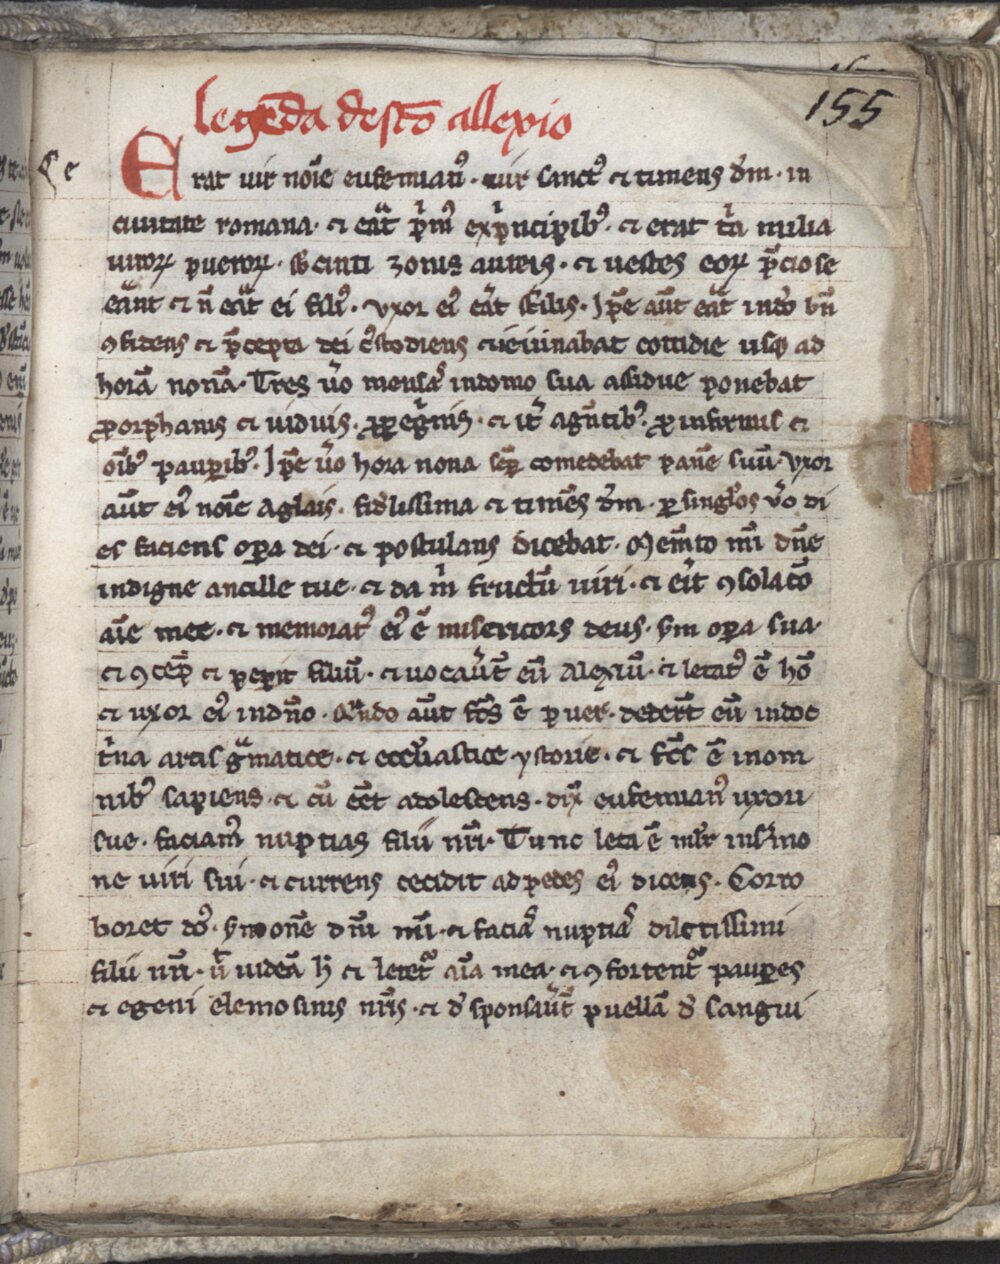 155
legēda de sc̄o allexio
Erat uir noīe eufemianꝰ · uir sanctꝰ ⁊ timens dm̄ · in
ciuitate romana · ⁊ eāt pͥmꝰ ex pͥncipibꝰ · ⁊ erat tͥa milia
uiroꝝ pueroꝝ · scincti zonis aureis · ⁊ uestes eoꝝ p̄ciose
eānt ⁊ n̄ eāt ei filiꝰ · vxor eiꝰ eāt st̓ilis · Ip̄e aūt eāt in dō bn̄
ꝯfidens ⁊ p̄cepta dei cͣstodiens ⁊ ieiunabat cottidie usqꝫ ad
horā nonā · Tres ūo mensas̄ in domo sua assidue ponebat
ꝓ orphanis ⁊ uiduis · ꝓ peg̓nis · ⁊ it̓ agn̄tibꝰ · ꝓ infirmis ⁊
oīb ꝰ paupibꝰ · Ip̄e ūo hora nona sēp comedebat panē suū · vxor
aūt eiꝰ noīe aglais · fidelissima ⁊ timēs dm̄ · ꝑ singl̓os ūo di
es faciens oꝑa dei · ⁊ postulans dicebat · Memēto mī dn̄e
indigne ancille tue · ⁊ da m̄ fructū uiri · ⁊ eīt ꝯsolatō
aīe mee · ⁊ memoratꝰ eiꝰ ē misericors deus · sm̄ oꝑa sua ·
⁊ ꝯcep̄ ⁊ pepit filiū · ⁊ uocaūt eū Alexiū · ⁊ letatꝰ ē hō
⁊ uxor eiꝰ in dn̄o · qn̄do aūt fc̄s ē puer · dederūt eū in doc
tͥna artis gͣmatice · ⁊ eccl̓iastice ystorie · ⁊ fc̄s ē in om
nibꝰ sapiens · ⁊ cū eēt adolescens · dix̄ eufemianꝰ uxori
sue · faciamꝰ nuptias filii nr̄i · Tunc leta ē ml̓r in s̓mo
ne uiri sui · ⁊ currens cecidit ad pedes eiꝰ dicens · Corro
boret ds̄ · s̓monē dn̄i mī · ⁊ faciās nuptias dilectissimi
filii nr̄i · ut uideā h̄ ⁊ letet᷑ aīa mea · ⁊ ꝯfortent᷑ pauꝑes
⁊ egeni elemosinis nr̄is · ⁊ d̓sponsaūt puellā d̓ sangui